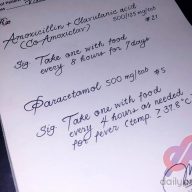 Rx
Amoxicillin + Clavulanic acid
(Co-Amoxiclav) 500/125 mg/tab
#21
Sig. Take one with food
every 8 hours for 7 days
Paracetamol 500 mg/tab #5
Sig. Take one with food
every 4 hours as needed
for fever (temp. ≥ 37.8°C)
daily